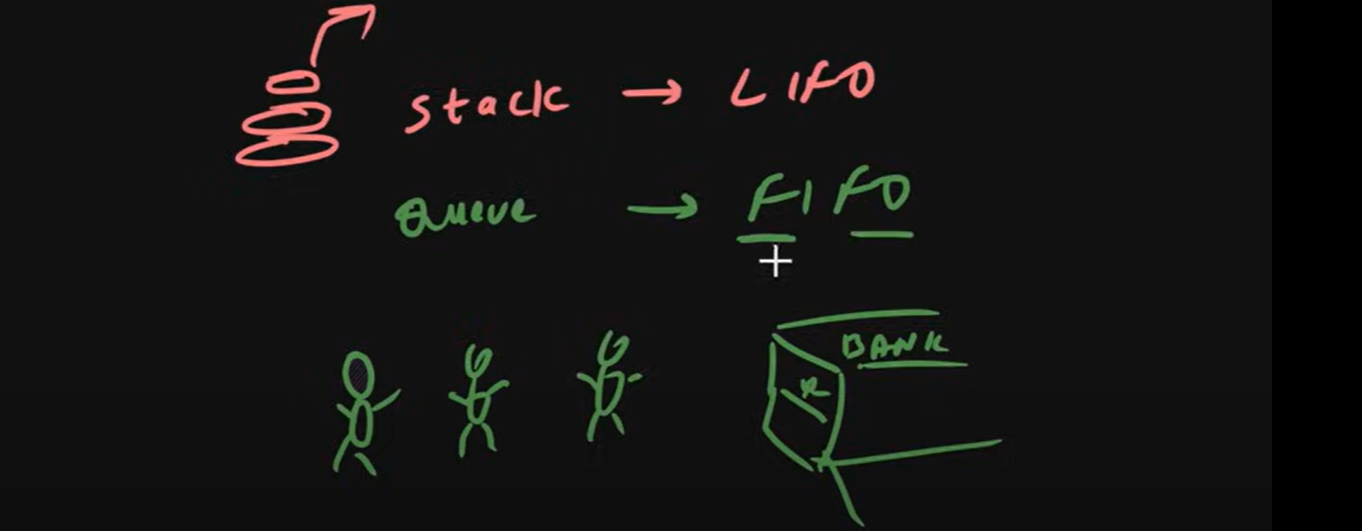 Stack → LIFO
Queue → FIFO
BANK